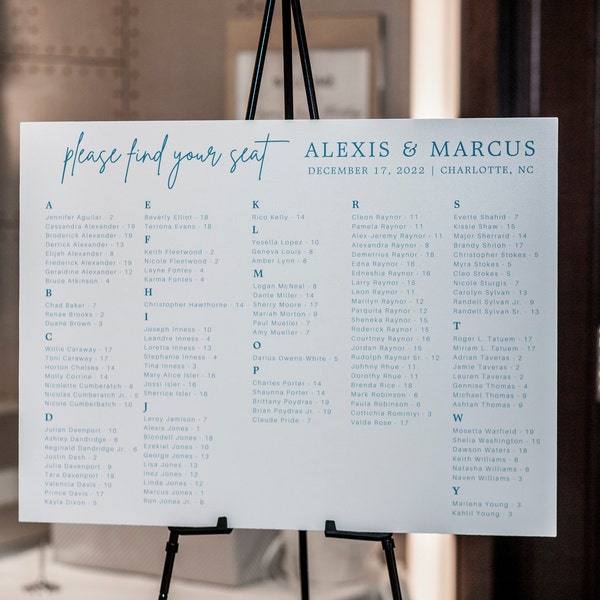 please find your seat
ALEXIS & MARCUS
DECEMBER 17, 2022 | CHARLOTTE, NC
A
Jennifer Aguilar · 2
Cassandra Alexander · 19
Broderick Alexander · 19
Derrick Alexander · 13
Elijah Alexander · 8
Frederick Alexander · 19
Geraldine Alexander · 12
Bruce Atkinson · 4
B
Chad Baker · 7
Renae Brooks · 2
Duane Brown · 3
C
Willie Caraway · 17
Toni Caraway · 17
Horton Chelsea · 14
Molly Corrine · 14
Nicolette Cumberatch · 8
Nicole Cumberbatch · 5
Nicole Cumberbatch · 10
D
Julian Davenport · 10
Ashley Dandridge · 6
Reginald Dandridge Jr. · 6
Justin Dash · 2
Julia Davenport · 9
Tara Davenport · 19
Valencia Davis · 10
Prince Davis · 17
Kayla Dixon · 5
E
Beverly Elliot · 18
Terrona Evans · 18
F
Keith Fleetwood · 2
Nicole Fleetwood · 2
Layne Fontes · 4
Karma Fontes · 4
H
Christopher Hawthorne · 14
I
Joseph Inness · 10
Leandre Inness · 4
Loretta Inness · 13
Stephanie Inness · 4
Tina Inness · 3
Mary Alice Isler · 16
Jossi Isler · 16
Sherrice Isler · 16
J
Leroy Jamison · 7
Alexis Jones · 1
Blondell Jones · 18
Ezekiel Jones · 10
George Jones · 13
Lisa Jones · 13
Inez Jones · 12
Linda Jones · 12
Marcus Jones · 1
Ron Jones Jr. · 8
K
Rico Kelly · 14
L
Yesella Lopez · 10
Geneva Louis · 8
Amber Lynn · 8
M
Logan McNeal · 8
Dante Miller · 14
Sherry Moore · 17
Mariah Morton · 9
Paul Mueller · 7
Amy Mueller · 7
O
Darius Owens-White · 5
P
Charles Porter · 14
Shaunna Porter · 14
Brittany Poydras · 19
Brian Poydras Jr. · 19
Claude Pride · 7
R
Cleon Raynor · 11
Pamela Raynor · 11
Alex-Jeremy Raynor · 11
Alexandra Raynor · 8
Demetrius Raynor · 16
Edna Raynor · 16
Edneshia Raynor · 16
Larry Raynor · 15
Leon Raynor · 11
Marilyn Raynor · 12
Parquita Raynor · 12
Sheneke Raynor · 15
Roderick Raynor · 15
Courtney Raynor · 16
Jordan Raynor · 15
Rudolph Raynor Sr. · 12
Johnny Rhue · 11
Dorothy Rhue · 11
Brenda Rice · 18
Mark Robinson · 6
Paula Robinson · 6
Cottichia Romimiyi · 3
Valda Rose · 17
S
Evette Shahid · 7
Kissie Shaw · 15
Major Sherrard · 14
Brandy Shiloh · 17
Christopher Stokes · 5
Myra Stokes · 5
Cleo Stokes · 5
Nicole Sturgis · 7
Carolyn Sylvan · 13
Randell Sylvan Jr. · 9
Randell Sylvan Sr. · 13
T
Roger L. Tatuem · 17
Miriam L. Tatuem · 17
Adrian Taveras · 2
Jamie Taveras · 2
Lauren Taveras · 2
Gennise Thomas · 4
Michael Thomas · 9
Ashtan Thomas · 9
W
Mosetta Warfield · 19
Shelia Washington · 15
Dawson Waters · 18
Keith Williams · 6
Natasha Williams · 6
Naven Williams · 6
Y
Marlena Young · 3
Kahlil Young · 3